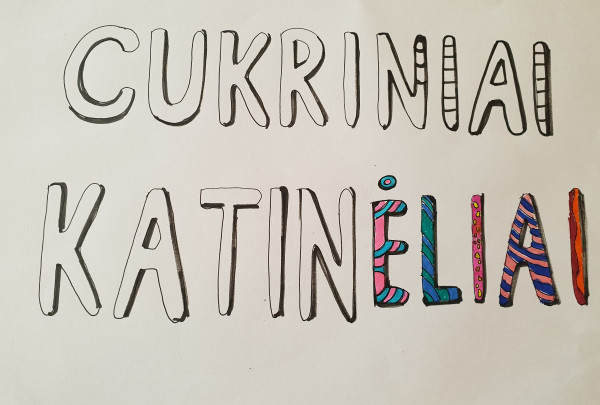 CUKRINIAI
KATINĖLIAI